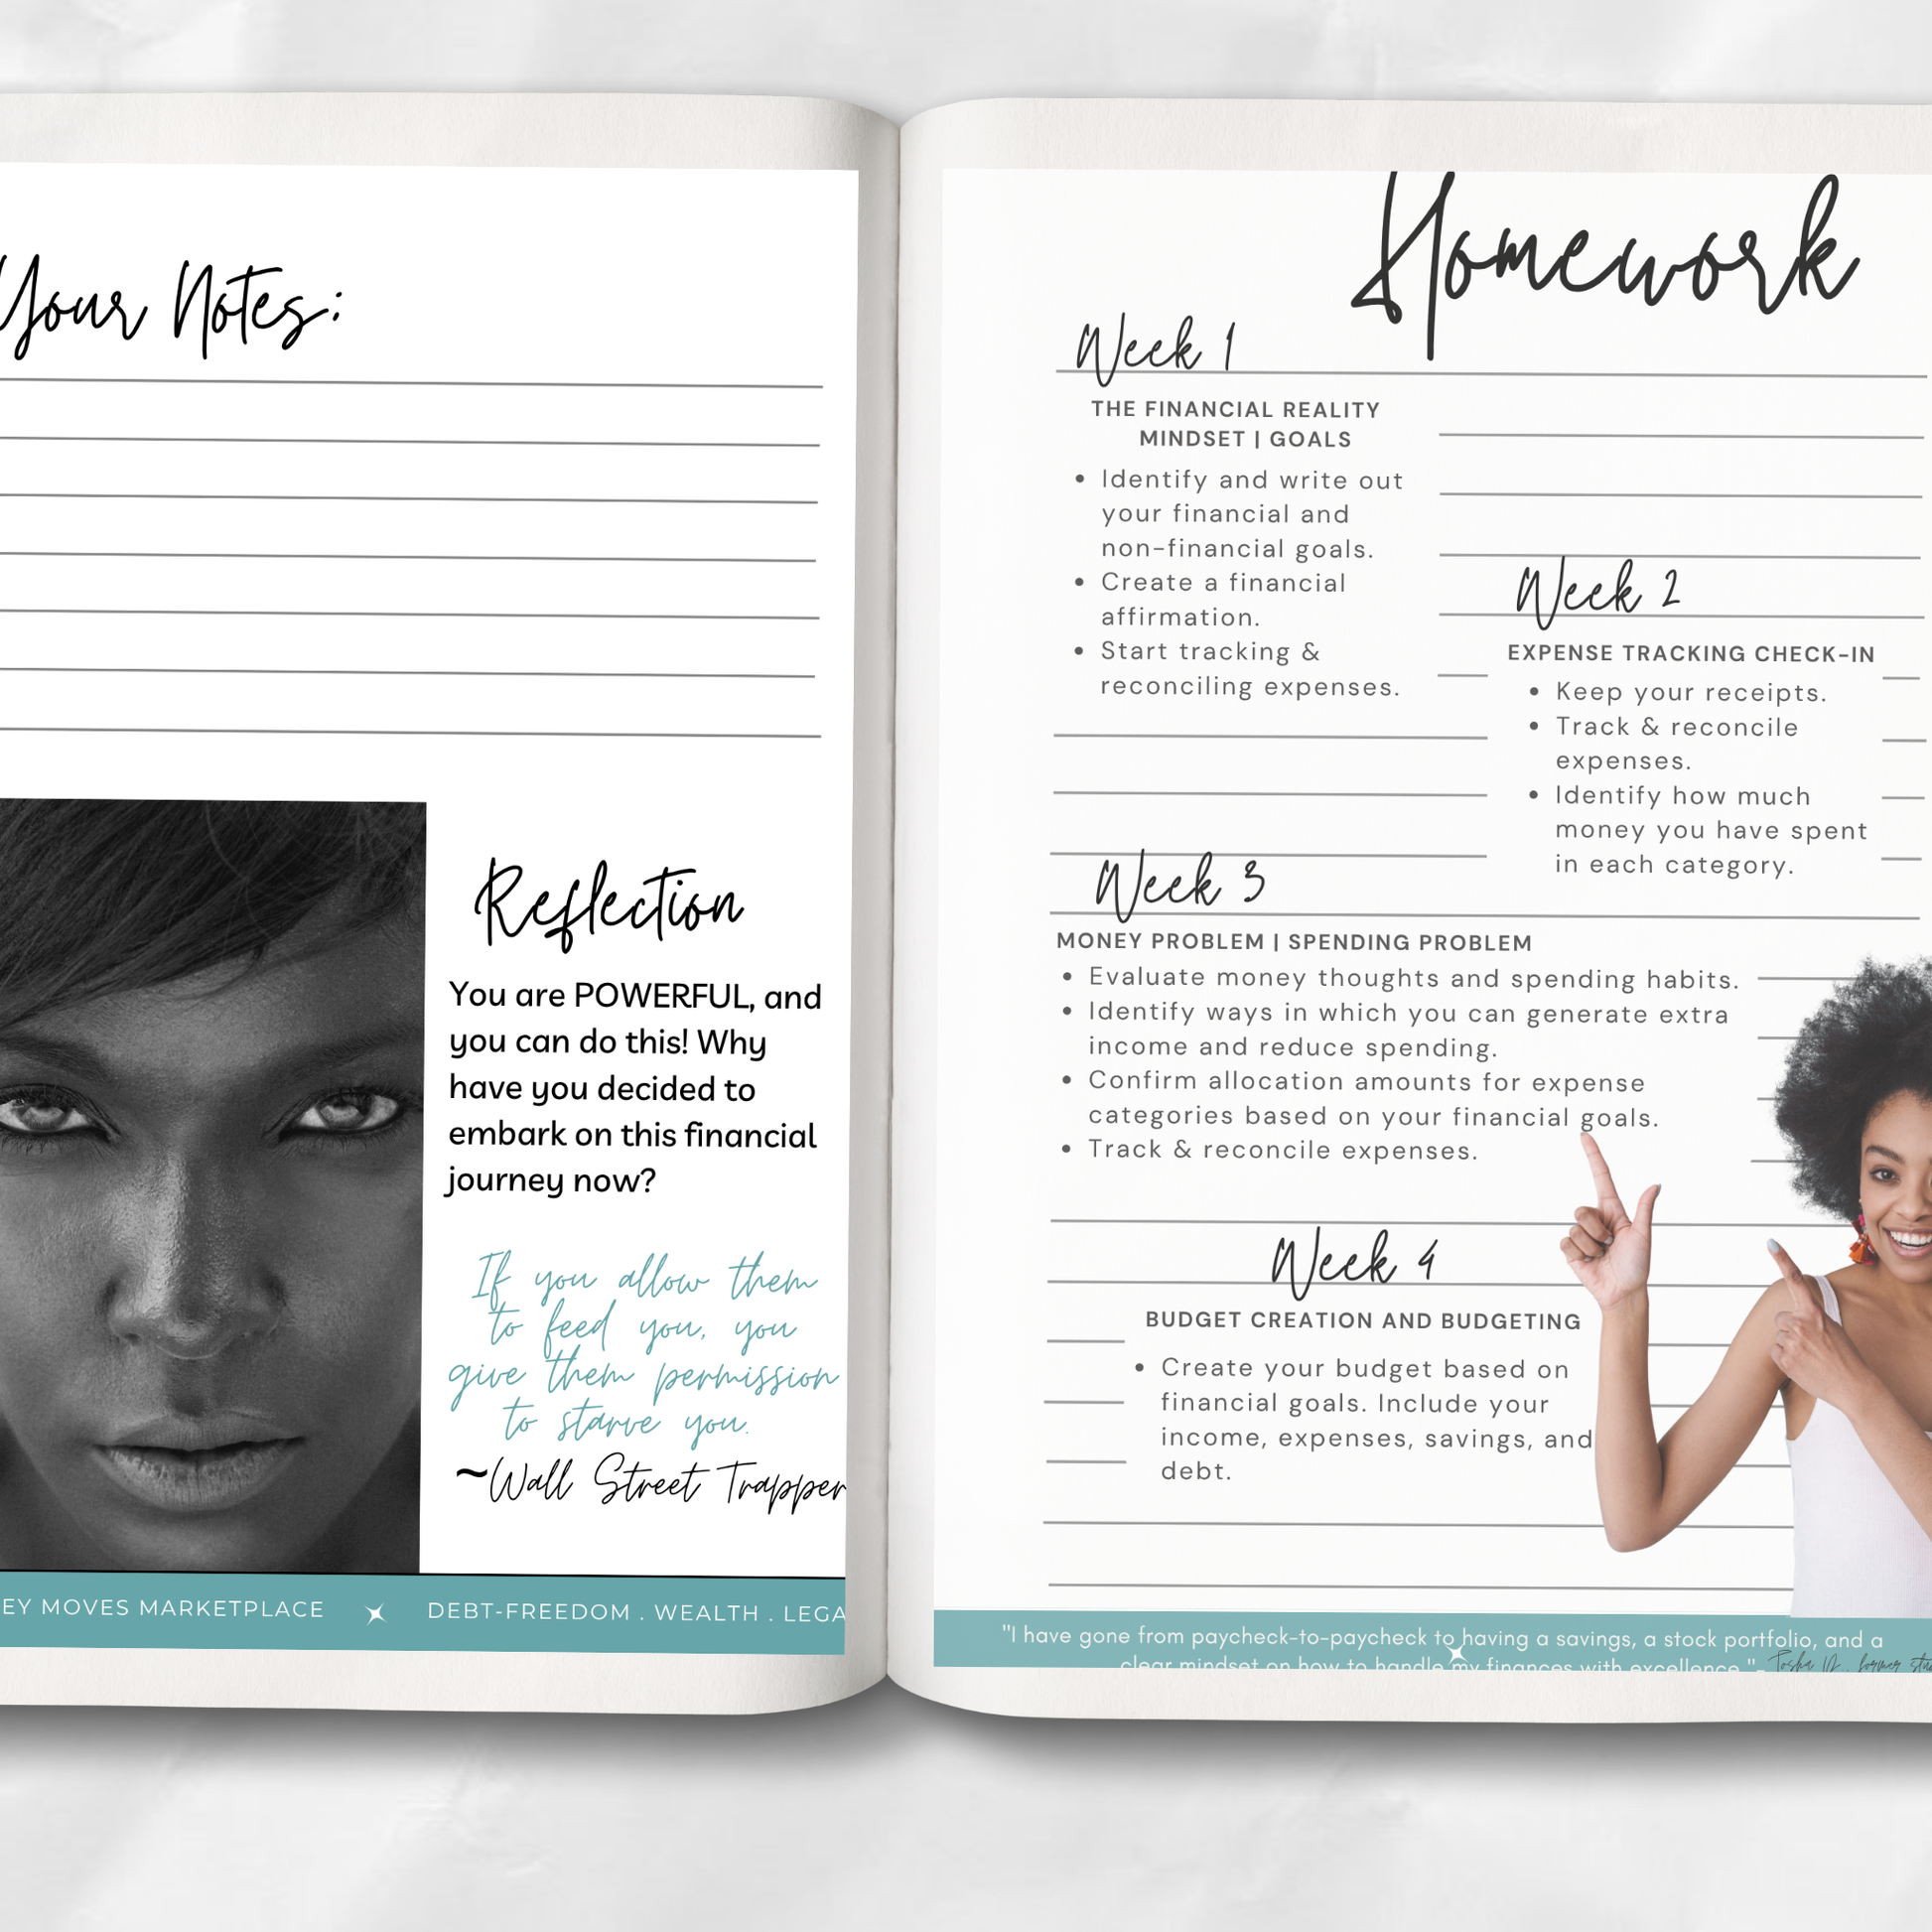 Your Notes:
Reflection
You are POWERFUL, and
you can do this! Why
have you decided to
embark on this financial
journey now?
If you allow them
to feed you, you
give them permission
to starve you.
~Wall Street Trapper
EY MOVES MARKETPLACE
DEBT-FREEDOM . WEALTH . LEGA
Homework
Week 1
THE FINANCIAL REALITY
MINDSET | GOALS
• Identify and write out
your financial and
non-financial goals.
• Create a financial
affirmation.
• Start tracking &
reconciling expenses.
Week 2
EXPENSE TRACKING CHECK-IN
• Keep your receipts.
• Track & reconcile
expenses.
• Identify how much
money you have spent
in each category.
Week 3
MONEY PROBLEM | SPENDING PROBLEM
• Evaluate money thoughts and spending habits.
• Identify ways in which you can generate extra
income and reduce spending.
• Confirm allocation amounts for expense
categories based on your financial goals.
• Track & reconcile expenses.
Week 4
BUDGET CREATION AND BUDGETING
• Create your budget based on
financial goals. Include your
income, expenses, savings, and
debt.
"I have gone from paycheck-to-paycheck to having a savings, a stock portfolio, and a
clear mindset on how to handle my finances with excellence."- Tosha D., former stu